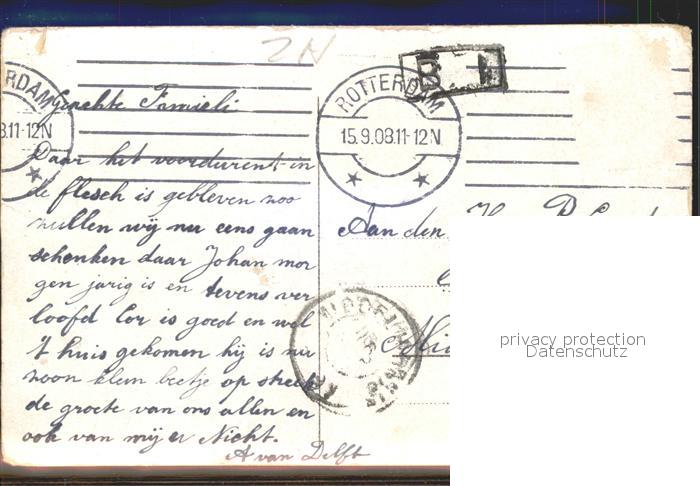 ZN
ROTTERDAM
15.9.08.11-12N
RDAM
8.11-12N
Geachte Famieli
Daar het voordurent in
de flesch is gebleven noo
zullen wij nu eens gaan
schenken daar Johan mor
gen jarig is en tevens ver
loofd Cor is goed en wel
t huis gekomen hij is nu
noon klein beetje op streek
de groete van ons allen en
ook van mij er Nicht.
A van Delft
Aan den
privacy protection
Datenschutz